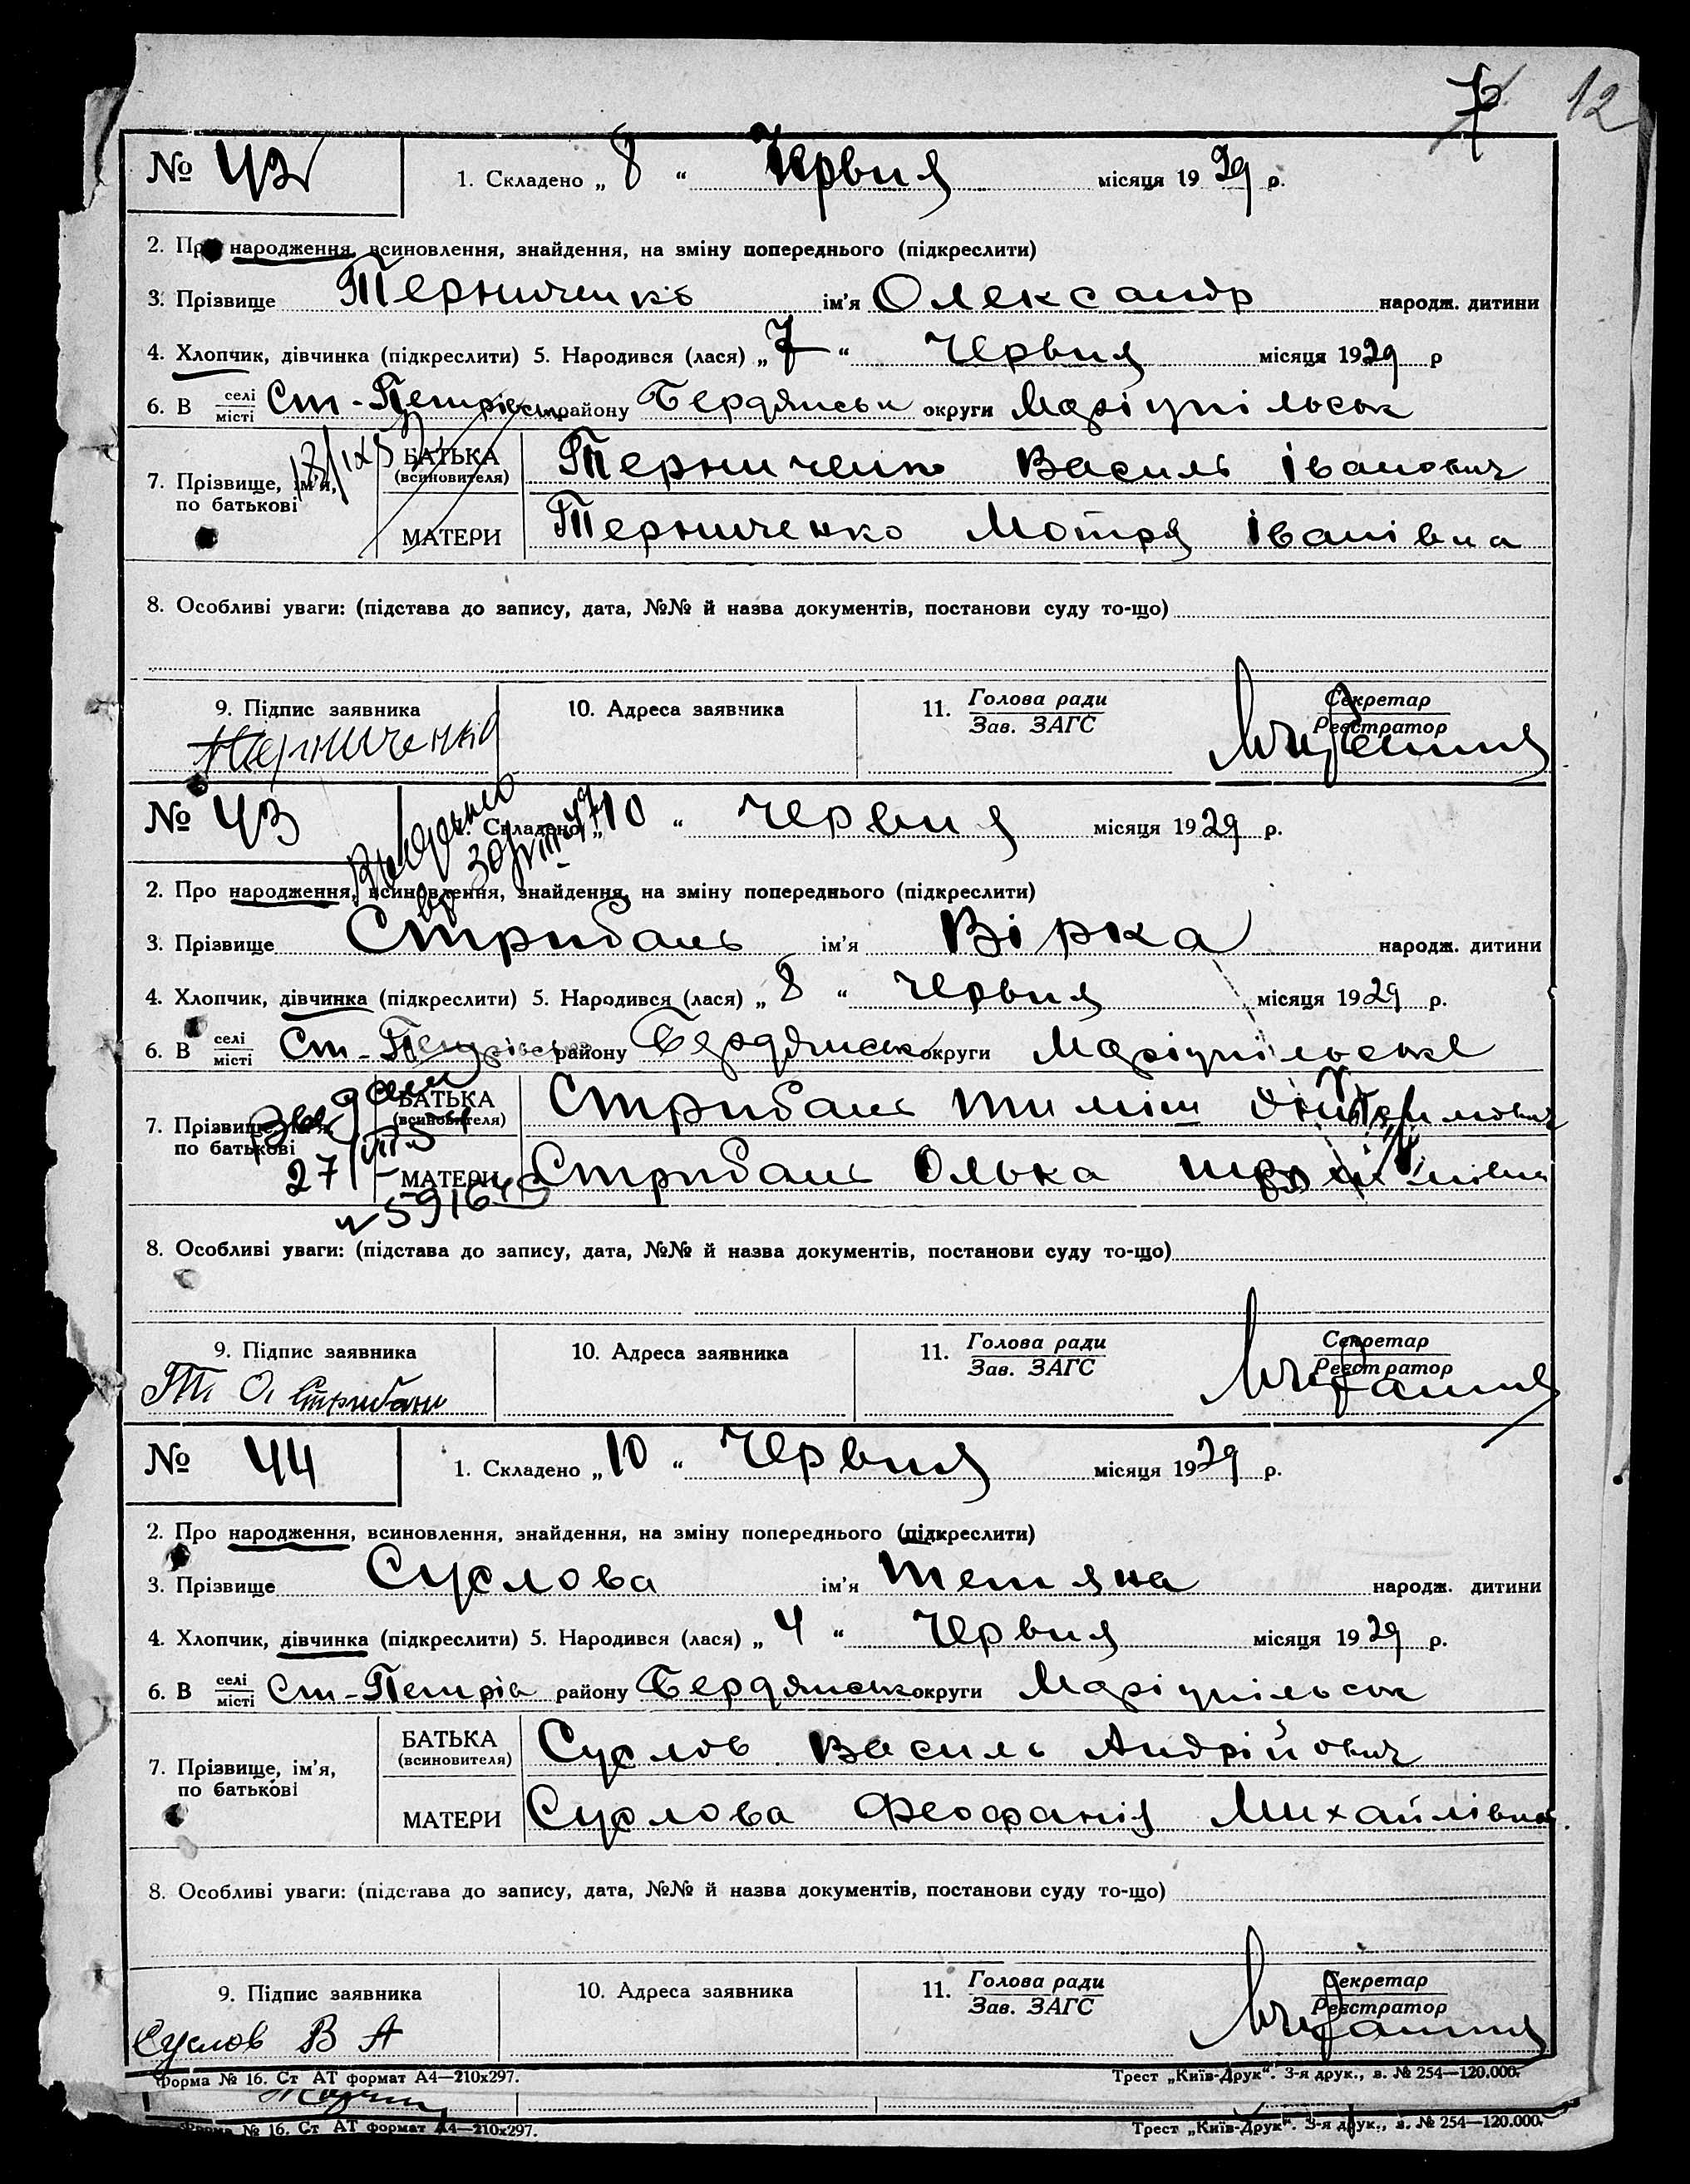 12
№ 42 1. Складено „ 8 “ Червня місяця 1929 р.
2. Про народження, всиновлення, знайдення, на зміну попереднього (підкреслити)
3. Прізвище Терниченко ім'я Олександр народж. дитини
4. Хлопчик, дівчинка (підкреслити) 5. Народився (лася) „ 7 “ Червня місяця 1929 р
6. В селі/місті Ст-Петрівськ району Бердянськ округи Маріупільськ
7. Прізвище, ім'я, по батькові БАТЬКА (всиновителя) Терниченко Василь Іванович
МАТЕРИ Терниченко Мотря Іванівна
8. Особливі уваги: (підстава до запису, дата, №№ й назва документів, постанови суду то-що)
9. Підпис заявника 10. Адреса заявника 11. Голова ради/Зав. ЗАГС Секретар/Реєстратор
Терниченко
№ 43 1. Складено „ 10 “ червня місяця 1929 р.
2. Про народження, всиновлення, знайдення, на зміну попереднього (підкреслити)
3. Прізвище Стрибань ім'я Вірка народж. дитини
4. Хлопчик, дівчинка (підкреслити) 5. Народився (лася) „ 8 “ червня місяця 1929 р.
6. В селі/місті Ст-Петрівськ району Бердянськ округи Маріупільське
7. Прізвище, ім'я, по батькові БАТЬКА (всиновителя) Стрибань Тиміш
27
МАТЕРИ Стрибань Олька
8. Особливі уваги: (підстава до запису, дата, №№ й назва документів, постанови суду то-що)
9. Підпис заявника 10. Адреса заявника 11. Голова ради/Зав. ЗАГС Секретар/Реєстратор
Стрибань
№ 44 1. Складено „ 10 “ Червня місяця 1929 р.
2. Про народження, всиновлення, знайдення, на зміну попереднього (підкреслити)
3. Прізвище Суслова ім'я Тетяна народж. дитини
4. Хлопчик, дівчинка (підкреслити) 5. Народився (лася) „ 4 “ Червня місяця 1929 р.
6. В селі/місті Ст-Петрів району Бердянськ округи Маріупільськ
7. Прізвище, ім'я, по батькові БАТЬКА (всиновителя) Суслов Василь Андрійович
МАТЕРИ Суслова Феофанія Михайлівна
8. Особливі уваги: (підстава до запису, дата, №№ й назва документів, постанови суду то-що)
9. Підпис заявника 10. Адреса заявника 11. Голова ради/Зав. ЗАГС Секретар/Реєстратор
Суслов В А
Форма № 16. Ст АТ формат А4—210х297. Трест „Київ-Друк“. 3-я друк., з. № 254—120.000.
Форма № 16. Ст АТ формат А4—210х297. Трест „Київ-Друк“. 3-я друк., з. № 254—120.000.